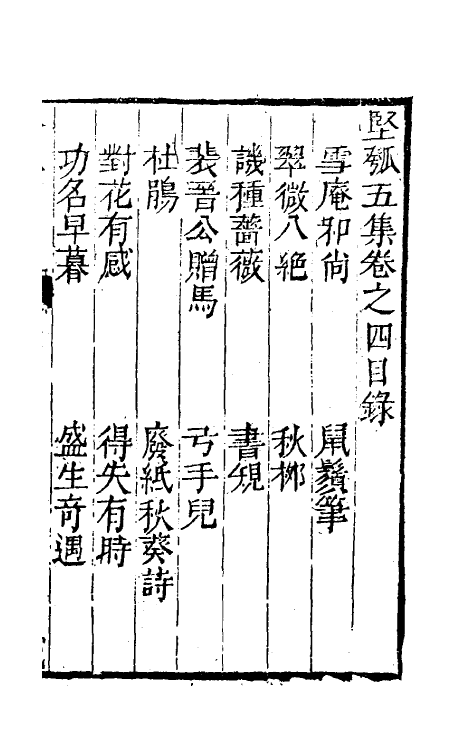 堅瓠五集卷之四目錄
雪庵和尙　鼠鬚筆
翠微八絶　秋梆
譏種薔薇　書䙾
裴晉公贈馬　丐手兒
杜鵑　廢紙秋葵詩
對花有感　得失有時
功名早暮　盛生奇遇